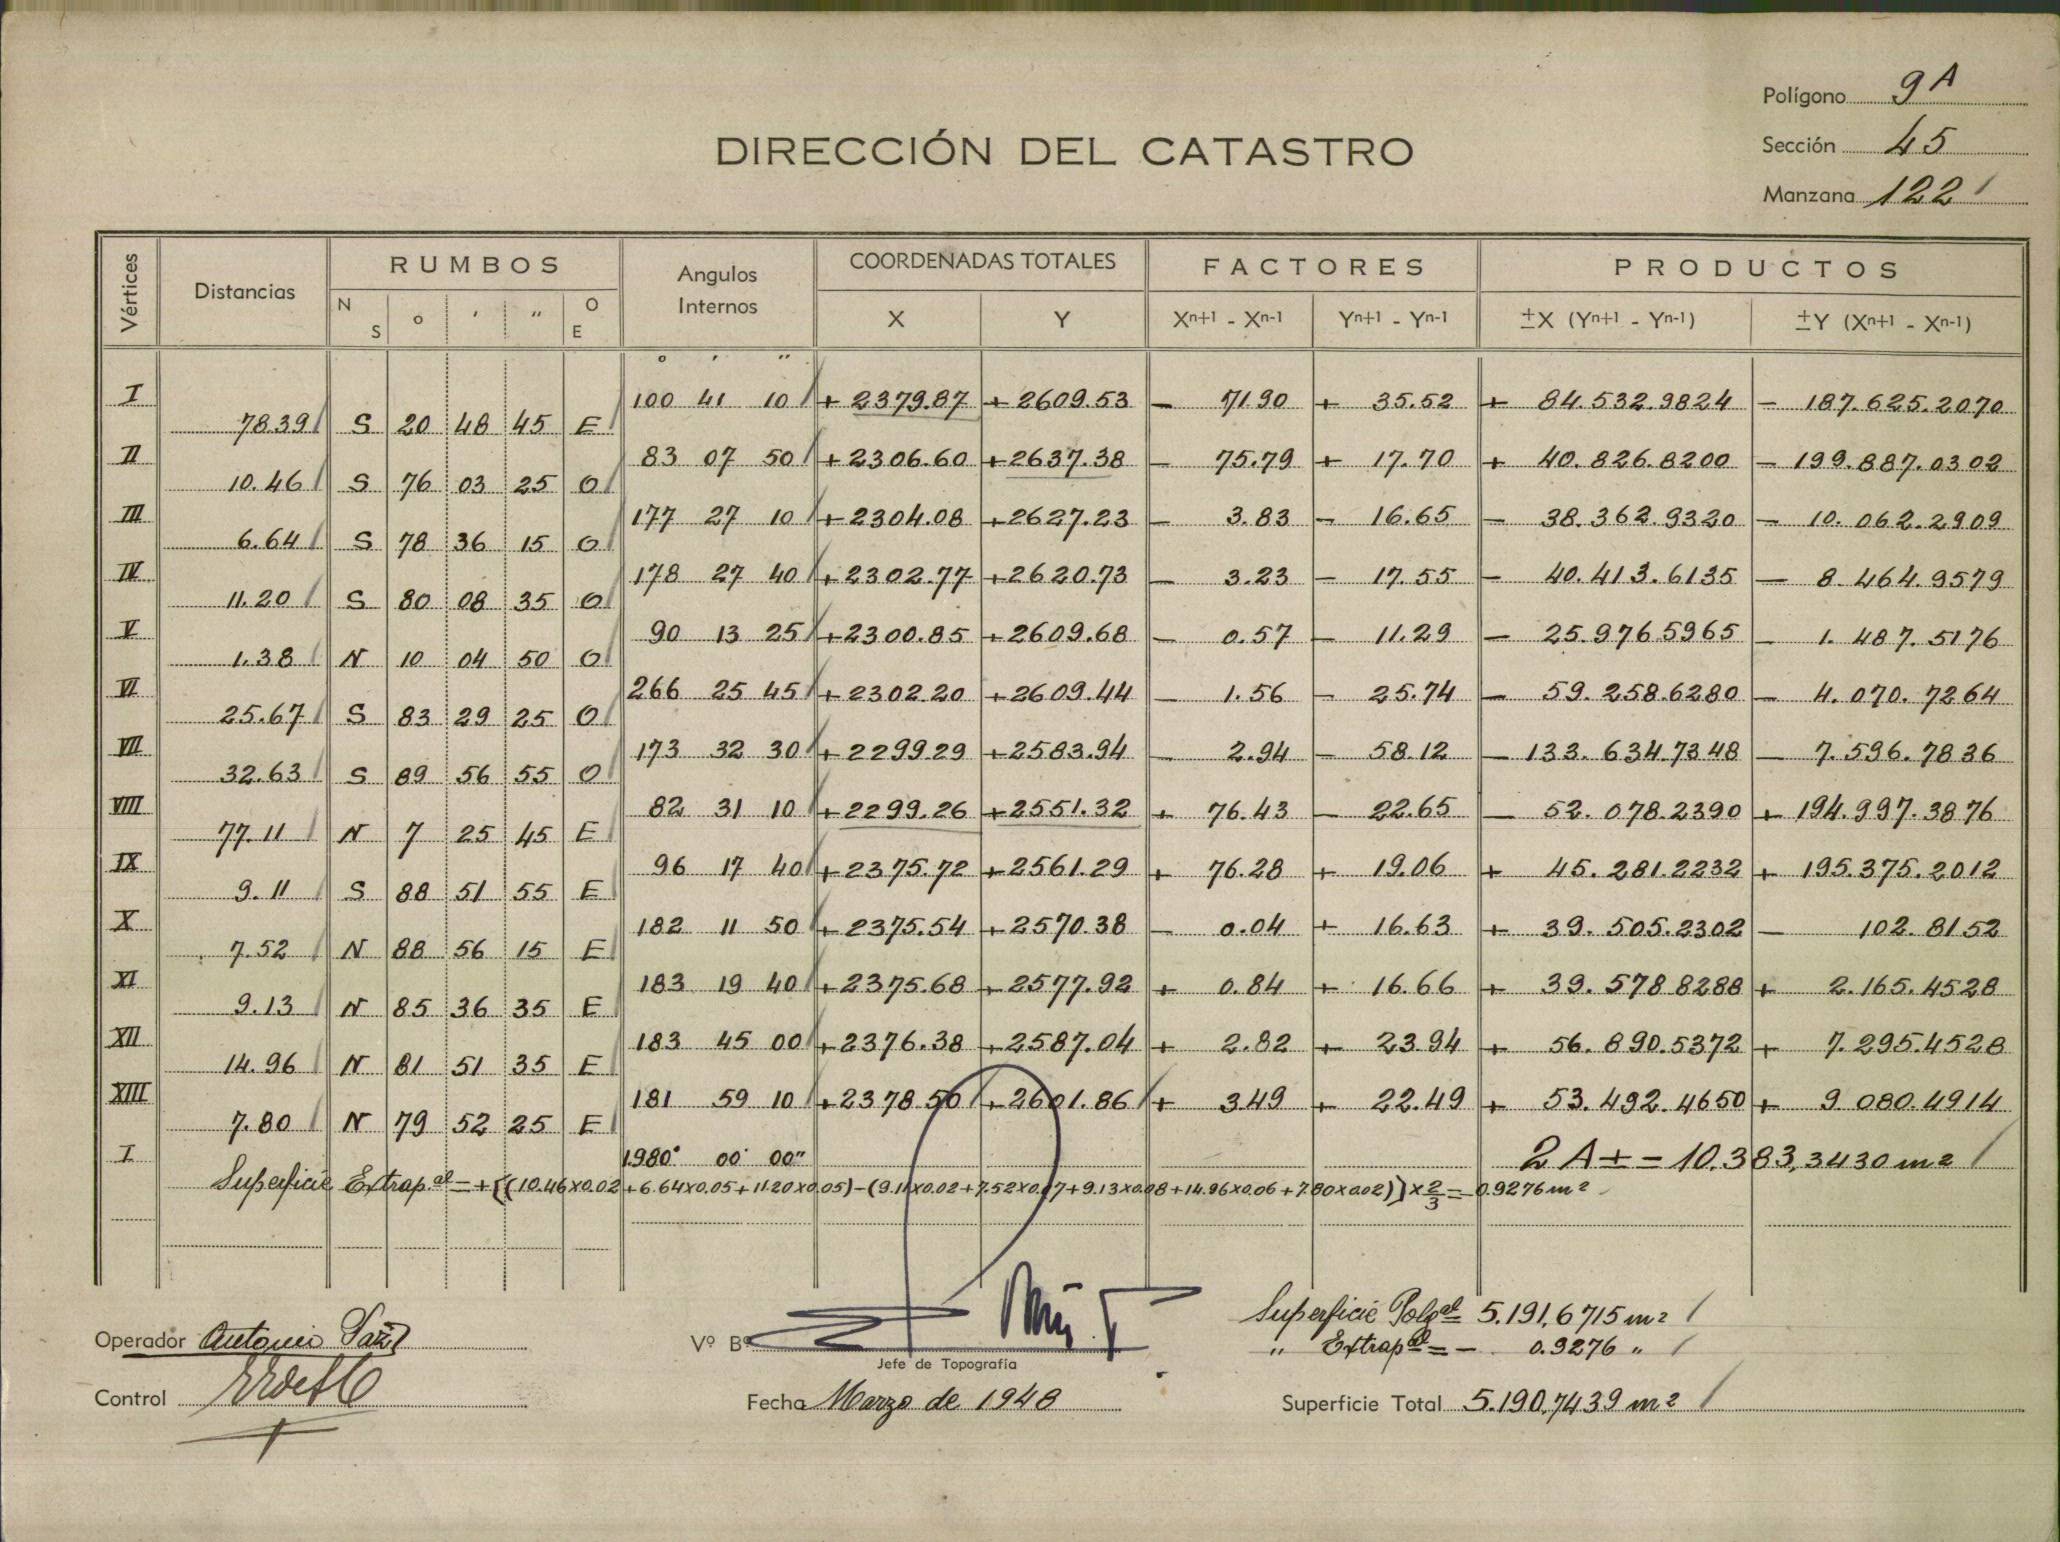 Polígono 9A
DIRECCIÓN DEL CATASTRO
Sección 45
Manzana 122
Vértices Distancias RUMBOS Angulos Internos COORDENADAS TOTALES FACTORES PRODUCTOS
N S ° ' " O E X Y Xn+1 - Xn-1 Yn+1 - Yn-1 ±X (Yn+1 - Yn-1) ±Y (Xn+1 - Xn-1)
° ' "
I 100 41 10 + 2379.87 + 2609.53 - 71.90 + 35.52 + 84.532.9824 - 187.625.2070
78.39 S 20 48 45 E
II 83 07 50 + 2306.60 + 2637.38 - 75.79 + 17.70 + 40.826.8200 - 199.887.0302
10.46 S 76 03 25 O
III 177 27 10 + 2304.08 + 2627.23 - 3.83 - 16.65 - 38.362.9320 - 10.062.2909
6.64 S 78 36 15 O
IV 178 27 40 + 2302.77 + 2620.73 - 3.23 - 17.55 - 40.413.6135 - 8.464.9579
11.20 S 80 08 35 O
V 90 13 25 + 2300.85 + 2609.68 - 0.57 - 11.29 - 25.976.5965 - 1.487.5176
1.38 N 10 04 50 O
VI 266 25 45 + 2302.20 + 2609.44 - 1.56 - 25.74 - 59.258.6280 - 4.070.7264
25.67 S 83 29 25 O
VII 173 32 30 + 2299.29 + 2583.94 - 2.94 - 58.12 - 133.634.7348 - 7.596.7836
32.63 S 89 56 55 O
VIII 82 31 10 + 2299.26 + 2551.32 + 76.43 - 22.65 - 52.078.2390 + 194.997.3876
77.11 N 7 25 45 E
IX 96 17 40 + 2375.72 + 2561.29 + 76.28 + 19.06 + 45.281.2232 + 195.375.2012
9.11 S 88 51 55 E
X 182 11 50 + 2375.54 + 2570.38 - 0.04 + 16.63 + 39.505.2302 - 102.8152
7.52 N 88 56 15 E
XI 183 19 40 + 2375.68 + 2577.92 + 0.84 + 16.66 + 39.578.8288 + 2.165.4528
9.13 N 85 36 35 E
XII 183 45 00 + 2376.38 + 2587.04 + 2.82 + 23.94 + 56.890.5372 + 7.295.4528
14.96 N 81 51 35 E
XIII 181 59 10 + 2378.50 + 2601.86 + 3.49 + 22.49 + 53.492.4650 + 9.080.4914
7.80 N 79 52 25 E
I 1980° 00' 00" 2 A ± = 10.383,3430 m2
Superficie Extrap.al = + {(10.46x0.02 + 6.64x0.05 + 11.20x0.05) - (9.11x0.02 + 7.52x0.07 + 9.13x0.08 + 14.96x0.06 + 7.80x0.02)} x 2/3 = - 0.9276 m2
Superficie Polg.al = 5.191,6715 m2
Operador Antonio
Vº Bº
" Extrap.al = - 0.9276 "
Jefe de Topografía
Control
Fecha Marzo de 1948
Superficie Total 5.190,7439 m2